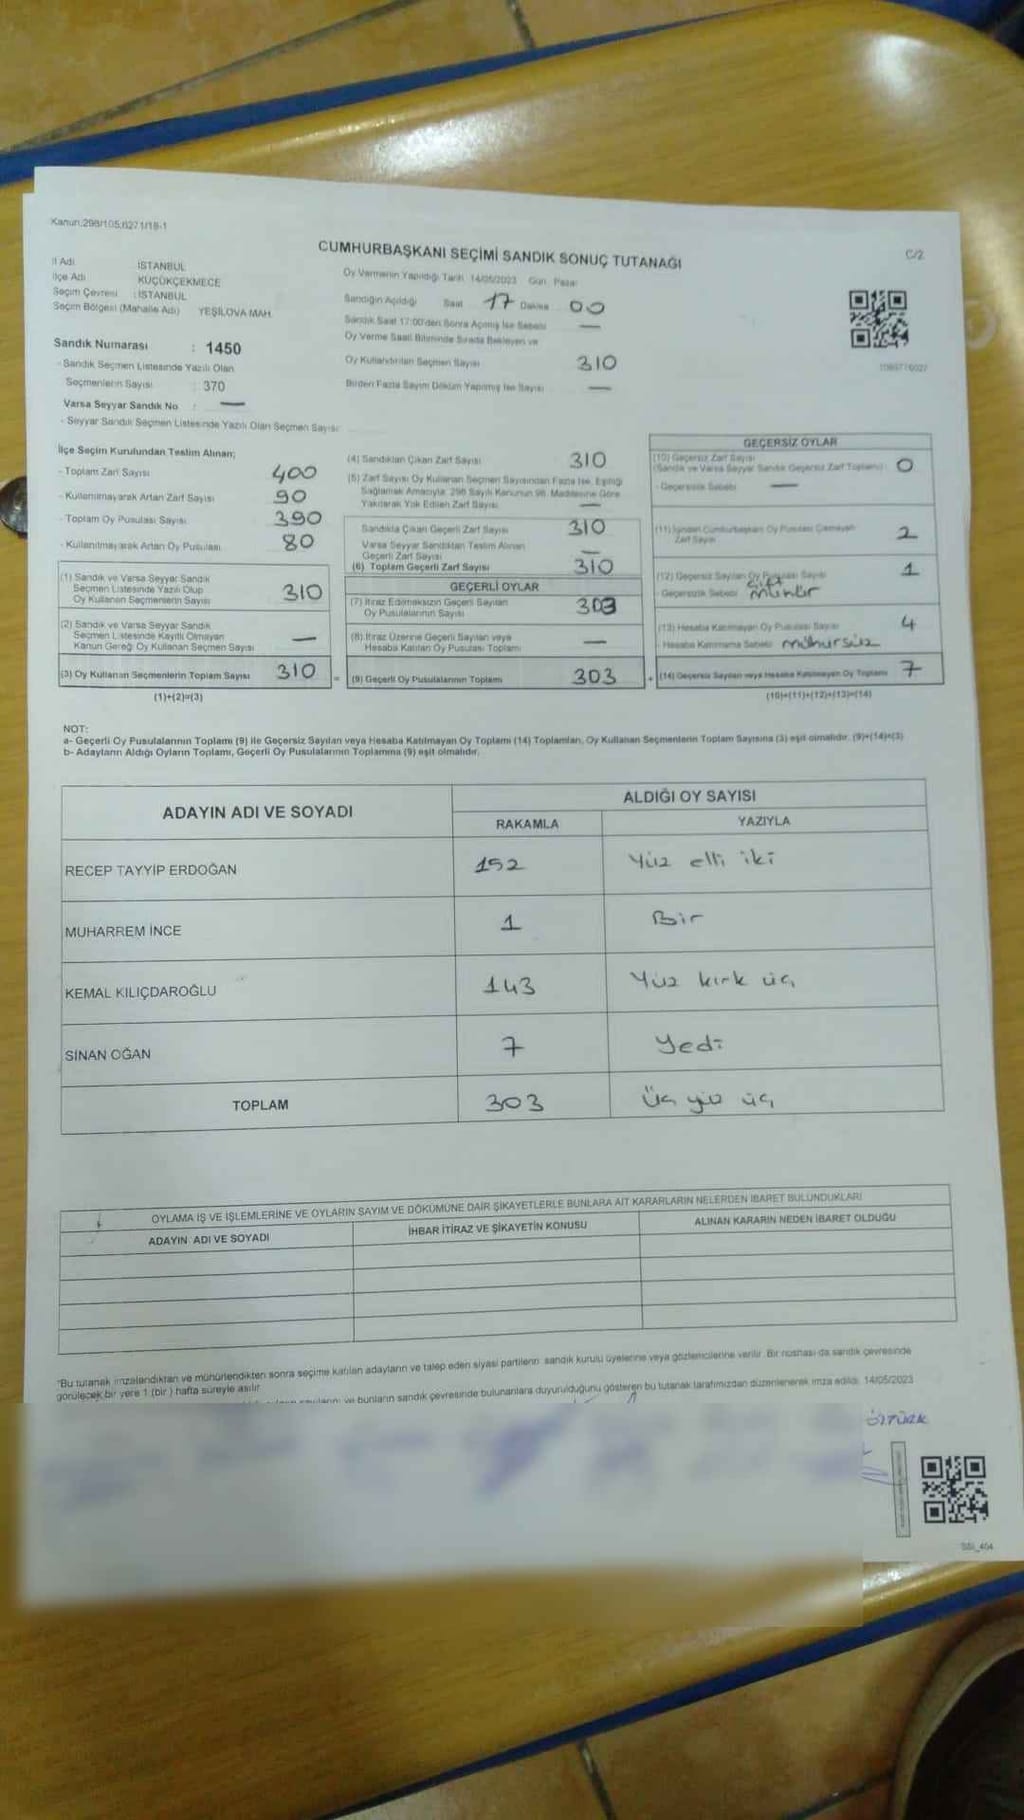 Kanun:298/105,6271/18-1
C/2
CUMHURBAŞKANI SEÇİMİ SANDIK SONUÇ TUTANAĞI
İl Adı İSTANBUL
İlçe Adı KÜÇÜKÇEKMECE
Seçim Çevresi : İSTANBUL
Seçim Bölgesi (Mahalle Adı) YEŞİLOVA MAH.
Sandık Numarası : 1450
- Sandık Seçmen Listesinde Yazılı Olan
Seçmenlerin Sayısı : 370
Varsa Seyyar Sandık No : —
- Seyyar Sandık Seçmen Listesinde Yazılı Olan Seçmen Sayısı
Oy Vermenin Yapıldığı Tarih 14/05/2023 Gün Pazar
Sandığın Açıldığı Saat 17 Dakika 00
Sandık Saat 17:00'den Sonra Açılmış İse Sebebi —
Oy Verme Saati Bitiminde Sırada Bekleyen ve
Oy Kullandırılan Seçmen Sayısı 310
Birden Fazla Sayım Döküm Yapılmış İse Sayısı —
İlçe Seçim Kurulundan Teslim Alınan;
- Toplam Zarf Sayısı 400
- Kullanılmayarak Artan Zarf Sayısı 90
- Toplam Oy Pusulası Sayısı 390
- Kullanılmayarak Artan Oy Pusulası 80
(1) Sandık ve Varsa Seyyar Sandık
Seçmen Listesinde Yazılı Olup
Oy Kullanan Seçmenlerin Sayısı 310
(2) Sandık ve Varsa Seyyar Sandık
Seçmen Listesinde Kayıtlı Olmayan
Kanun Gereği Oy Kullanan Seçmen Sayısı —
(3) Oy Kullanan Seçmenlerin Toplam Sayısı 310
(1)+(2)=(3)
(4) Sandıktan Çıkan Zarf Sayısı 310
(5) Zarf Sayısı Oy Kullanan Seçmen Sayısından Fazla İse, Eşitliği
Sağlamak Amacıyla, 298 Sayılı Kanunun 98. Maddesine Göre
Yakılarak Yok Edilen Zarf Sayısı —
Sandıkta Çıkan Geçerli Zarf Sayısı 310
Varsa Seyyar Sandıktan Teslim Alınan
Geçerli Zarf Sayısı —
(6) Toplam Geçerli Zarf Sayısı 310
GEÇERLİ OYLAR
(7) İtiraz Edilmeksizin Geçerli Sayılan
Oy Pusulalarının Sayısı 303
(8) İtiraz Üzerine Geçerli Sayılan veya
Hesaba Katılan Oy Pusulası Toplamı —
= (9) Geçerli Oy Pusulalarının Toplamı 303
GEÇERSİZ OYLAR
(10) Geçersiz Zarf Sayısı
(Sandık ve Varsa Seyyar Sandık Geçersiz Zarf Toplamı) 0
- Geçersizlik Sebebi —
(11) İçinden Cumhurbaşkanı Oy Pusulası Çıkmayan
Zarf Sayısı 2
(12) Geçersiz Sayılan Oy Pusulası Sayısı 1
- Geçersizlik Sebebi çift mühür
(13) Hesaba Katılmayan Oy Pusulası Sayısı 4
- Hesaba Katılmama Sebebi mühürsüz
+ (14) Geçersiz Sayılan veya Hesaba Katılmayan Oy Toplamı 7
(10)+(11)+(12)+(13)=(14)
NOT:
a- Geçerli Oy Pusulalarının Toplamı (9) ile Geçersiz Sayılan veya Hesaba Katılmayan Oy Toplamı (14) Toplamları, Oy Kullanan Seçmenlerin Toplam Sayısına (3) eşit olmalıdır. (9)+(14)=(3)
b- Adayların Aldığı Oyların Toplamı, Geçerli Oy Pusulalarının Toplamına (9) eşit olmalıdır.
ADAYIN ADI VE SOYADI
ALDIĞI OY SAYISI
RAKAMLA YAZIYLA
RECEP TAYYİP ERDOĞAN 152 Yüz elli iki
MUHARREM İNCE 1 Bir
KEMAL KILIÇDAROĞLU 143 Yüz kırk üç
SİNAN OĞAN 7 Yedi
TOPLAM 303 Üç yüz üç
OYLAMA İŞ VE İŞLEMLERİNE VE OYLARIN SAYIM VE DÖKÜMÜNE DAİR ŞİKAYETLERLE BUNLARA AİT KARARLARIN NELERDEN İBARET BULUNDUKLARI
ADAYIN ADI VE SOYADI İHBAR İTİRAZ VE ŞİKAYETİN KONUSU ALINAN KARARIN NEDEN İBARET OLDUĞU
"Bu tutanak imzalandıktan ve mühürlendikten sonra seçime katılan adayların ve talep eden siyasi partilerin sandık kurulu üyelerine veya gözlemcilerine verilir. Bir nüshası da sandık çevresinde
görülecek bir yere 1 (bir) hafta süreyle asılır.
ve bunların sandık çevresinde bulunanlara duyurulduğunu gösteren bu tutanak tarafımızdan düzenlenerek imza edildi. 14/05/2023
ÖZTÜRK